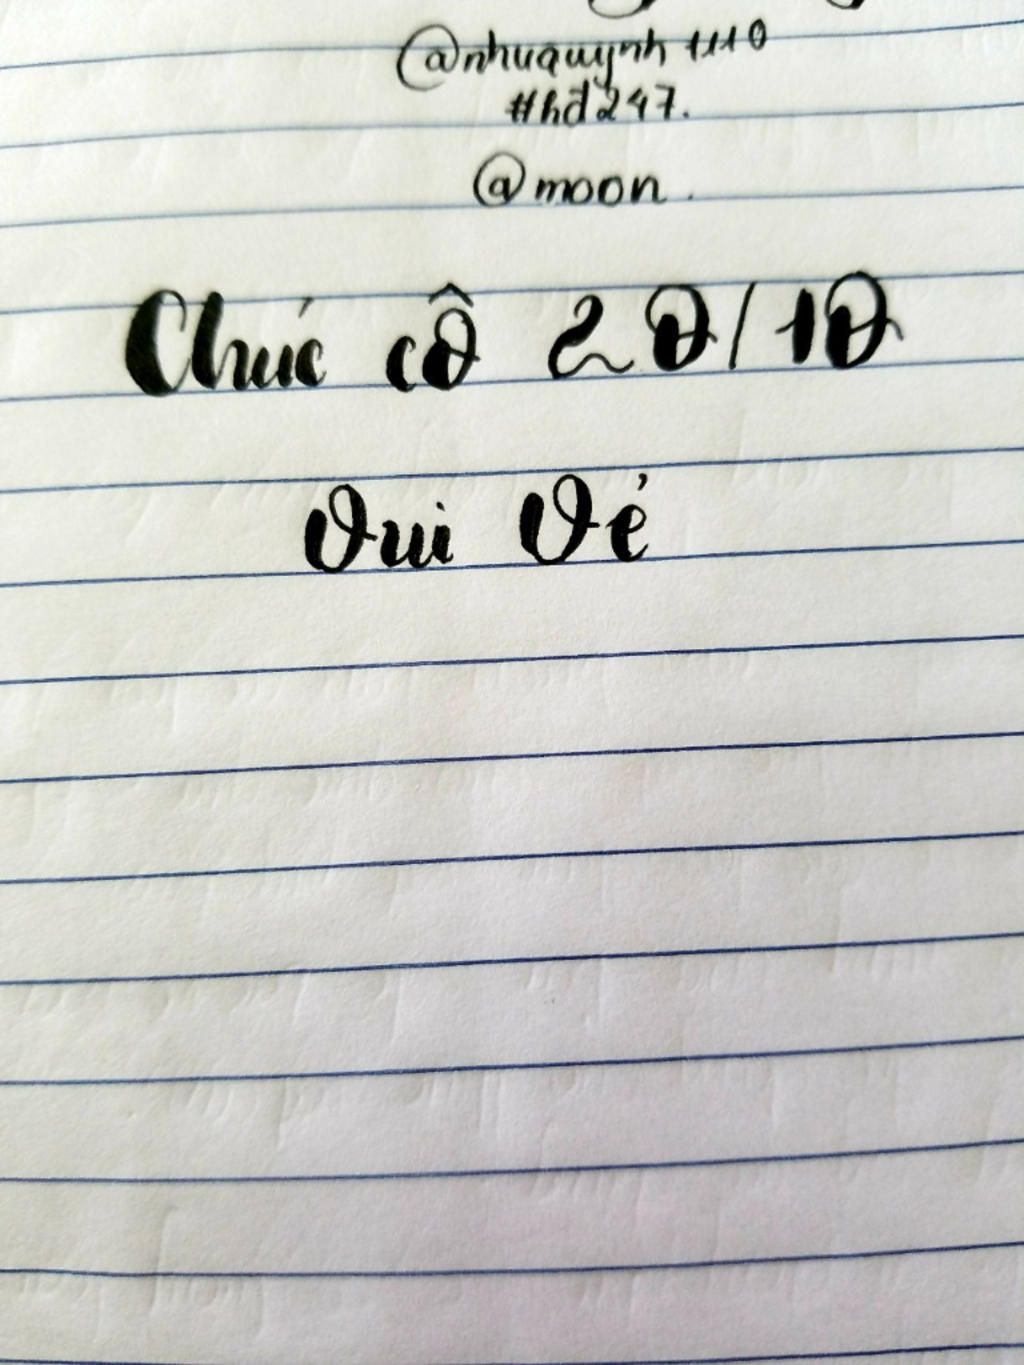 @nhuquynh1110
#hd247.
@moon.
Chúc cô 20/10
Vui Vẻ